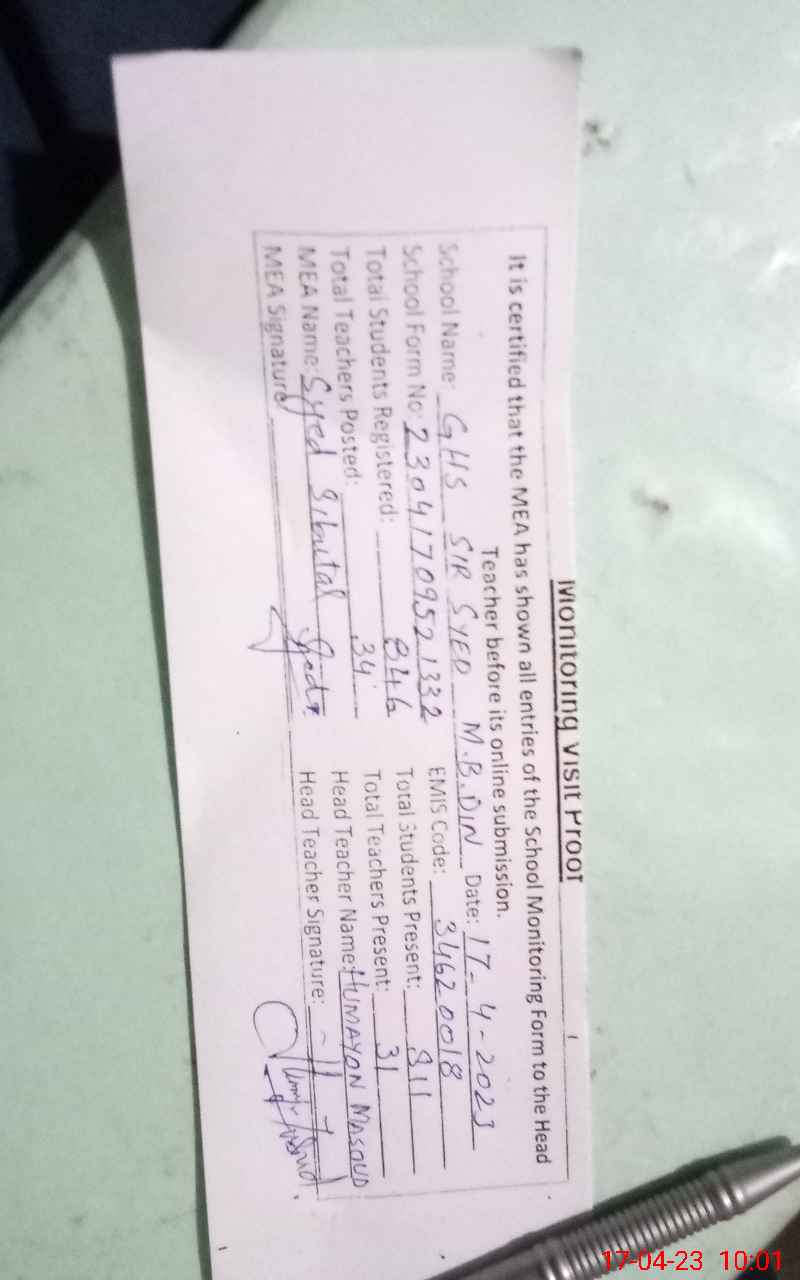 Monitoring Visit Proof
It is certified that the MEA has shown all entries of the School Monitoring Form to the Head
Teacher before its online submission.
School Name: GHS SIR SYED M.B.DIN Date: 17-4-2023
School Form No: 23041709521332 EMIS Code: 34620018
Total Students Registered: 846 Total Students Present: 811
Total Teachers Posted: 34 Total Teachers Present: 31
MEA Name: Syed Sibutal Head Teacher Name: HUMAYON MASOUD
MEA Signature Head Teacher Signature:
17-04-23 10:01